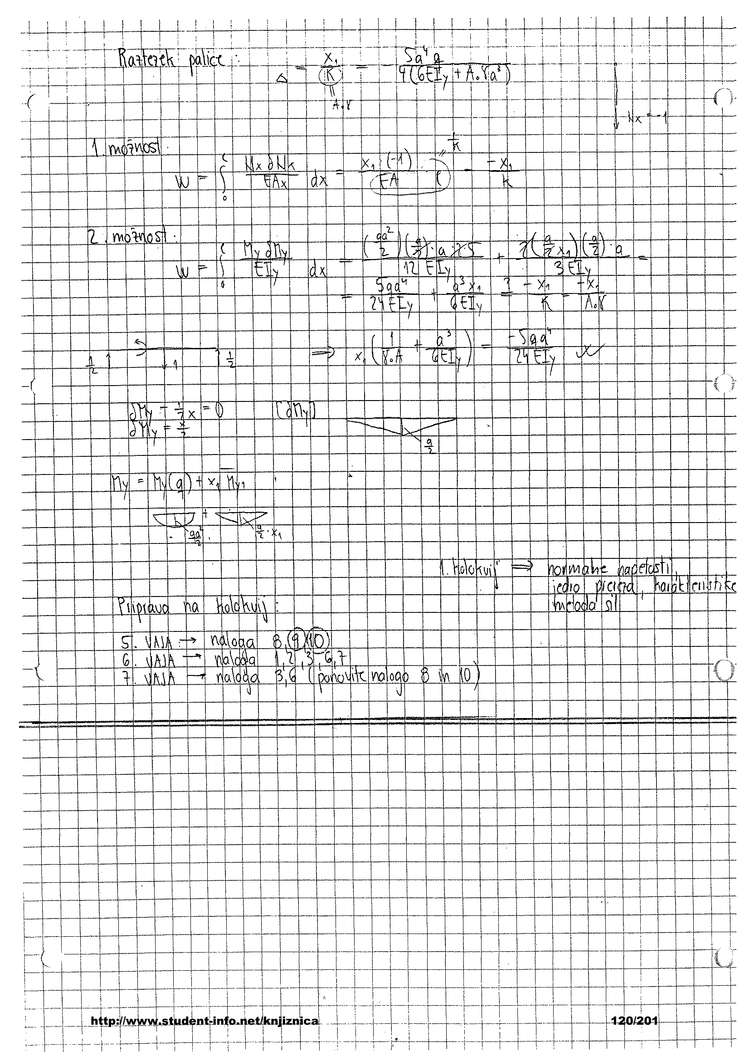 Raztezek palice: Δ = x₁/K = 5a⁴q / 4(6EI_y + A₀γa³)
A₀γ
N_x = -1
1. možnost:
w = ∫₀ˡ N_x δN_x / EA_x dx = x₁·(-1)/EA · l = -x₁/K
1/K
2. možnost:
w = ∫₀ˡ M_y δM_y / EI_y dx = (qa²/2)(a/2)·a·2·5 / 12EI_y + 2(a/2 x₁)(a/2)·a / 3EI_y =
= 5qa⁴/24EI_y + a³x₁/6EI_y ?= -x₁/K = -x₁/A₀γ
1/2 1 1/2 ⇒ x₁(1/γ₀A + a³/6EI_y) = -5qa⁴/24EI_y
δM_y - 1/2 x = 0 [δM_y]
δM_y = x/2
a/2
M_y = M_y(q) + x₁ M_y₁
+
qa²/2 a/2·x₁
1. kolokvij ⇒ normalne napetosti,
jedro prereza, karakteristike
metoda sil
Priprava na kolokvij:
5. VAJA → naloga 8, 9, 10
6. VAJA → naloga 1, 2, 3, 6, 7
7. VAJA → naloga 3, 6 (ponovite nalogo 8 in 10)
http://www.student-info.net/knjiznica 120/201